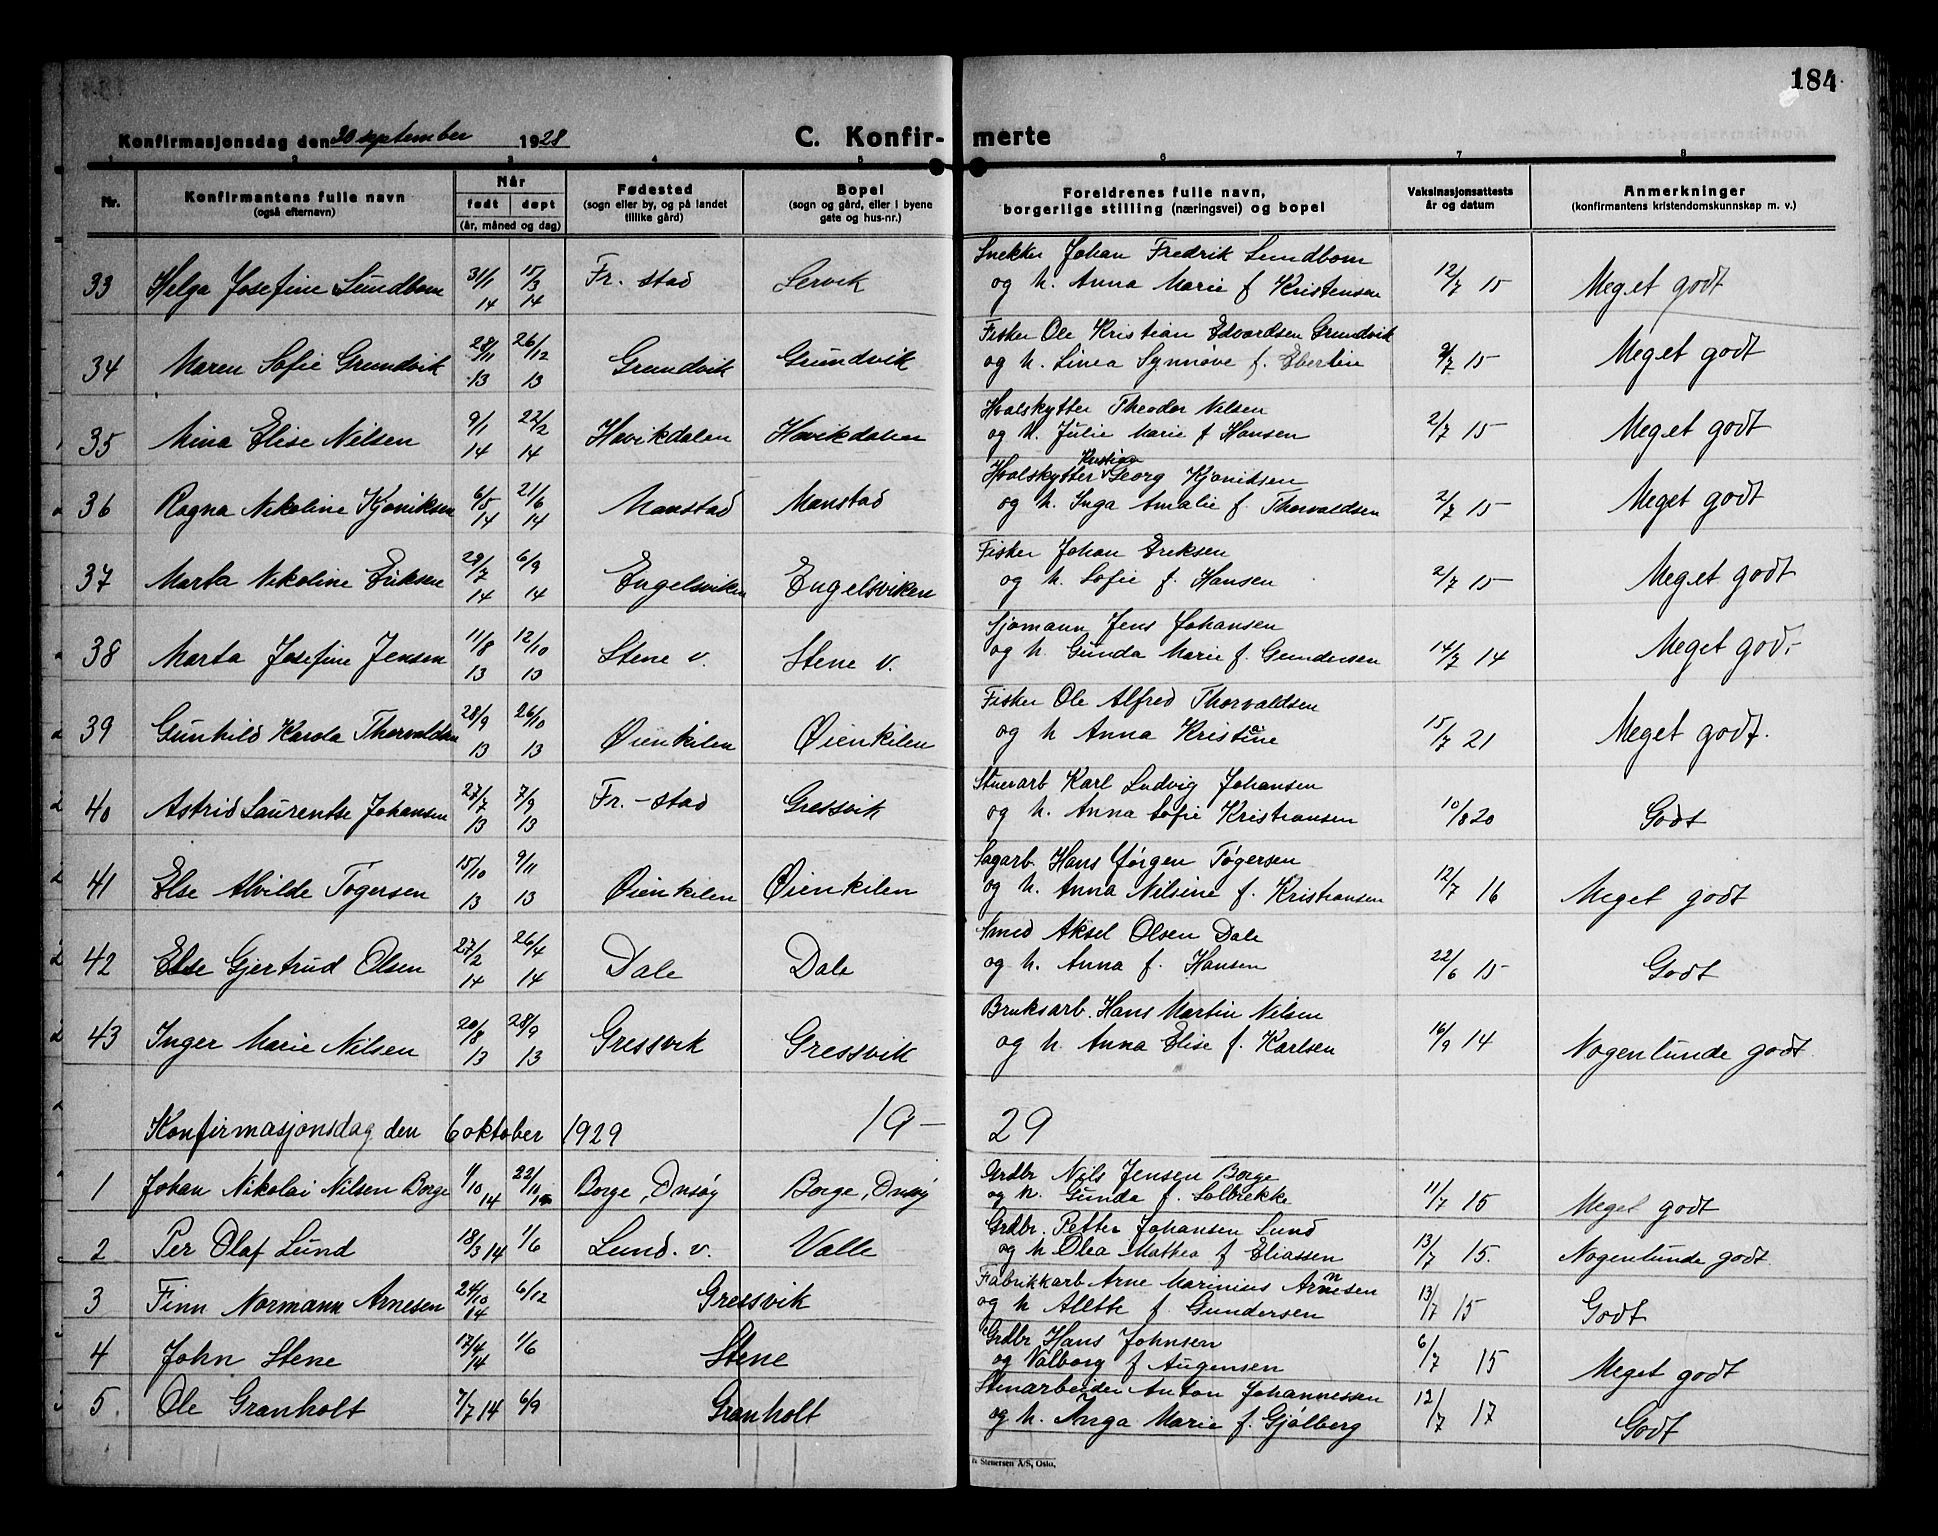 184
Konfirmasjonsdag den 30 september 1928 C. Konfir- merte
1 2 3 4 5 6 7 8
Nr. Konfirmantens fulle navn (også efternavn) Når født døpt (år, måned og dag) Fødested (sogn eller by, og på landet tillike gård) Bopel (sogn og gård, eller i byene gate og hus-nr.) Foreldrenes fulle navn, borgerlige stilling (næringsvei) og bopel Vaksinasjonsattests år og datum Anmerkninger (konfirmantens kristendomskunnskap m. v.)
33 Helga Josefine Sundbom 31/1 14 15/3 14 Fr. stad Lervik Snekker Johan Fredrik Sundbom
og h. Anna Marie f Kristensen 12/7 15 Meget godt
34 Maren Sofie Grundvik 28/11 13 26/12 13 Grundvik Grundvik Fisker Ole Kristian Edvardsen Grundvik
og h. Linea Synnøve f. Ebertin 2/7 15 Meget godt
35 Mina Elise Nilsen 9/1 14 22/2 14 Havikdalen Havikdalen Hvalskytter Theodor Nilsen
og h. Julie Marie f Hansen 2/7 15 Meget godt
36 Ragna Nikoline Kjøniksen 6/5 14 21/6 14 Manstad Manstad Hvalskytter Kristian Georg Kjøniksen
og h. Inga Amalie f. Thorvaldsen 2/7 15 Meget godt
37 Marta Nikoline Eriksen 29/7 14 6/9 14 Engelsviken Engelsviken Fisker Johan Eriksen
og h. Sofie f. Hansen 2/7 15 Meget godt
38 Marta Josefine Jensen 11/8 13 12/10 13 Stene v. Stene v. Sjømann Jens Johansen
og h. Gunda Marie f. Gundersen 14/7 14 Meget god.-
39 Gunhild Karola Thorvaldsen 28/9 13 26/10 13 Øienkilen Øienkilen Fisker Ole Alfred Thorvaldsen
og h Anna Kristine 15/7 21 Meget godt.
40 Astrid Laurentse Johansen 27/7 13 7/9 13 Fr.-stad Gressvik Stuerarb Karl Ludvig Johansen
og h. Anna Sofie Kristiansen 10/8 20 Godt
41 Else Alvilde Tøgersen 15/10 13 9/11 13 Øienkilen Øienkilen Sagarb. Hans Jørgen Tøgersen
og h. Anna Nilsine f. Kristiansen 12/7 16 Meget godt
42 Else Gjertrud Olsen 27/2 14 26/4 14 Dale Dale Smed Aksel Olsen Dale
og h. Anna f. Hansen 22/6 15 Godt
43 Inger Marie Nilsen 20/8 13 28/9 13 Gressvik Gressvik Bruksarb. Hans Martin Nilsen
og h. Anna Elise f. Karlsen 16/9 14 Nogenlunde godt.
Konfirmasjonsdag den 6 oktober 1929 19- 29
1 Johan Nikolai Nilsen Borge 1/10 14 22/11 Borge, Onsøy Borge, Onsøy Grdbr Nils Jensen Borge
og h. Gunda f. Solbrekke 11/7 15 Meget godt
2 Per Olaf Lund 18/3 14 1/6 Lund. v. Valle Grdbr. Petter Johansen Lund
og h Olea Mathea f Eliassen 13/7 15. Nogenlunde godt.
3 Finn Normann Arnesen 24/10 14 6/12 Gressvik Fabrikkarb Arne Marinius Arnesen
og h Alette f. Gundersen 13/7 15 Godt
4 John Stene 17/4 14 1/6 Stene Grdbr Hans Johnsen
og Valborg f Augensen 6/7 15 Meget godt
5. Ole Granholt 7/7 14 6/9 Granholt Stenarbeider Anton Johannessen
og h. Inga Marie f. Gjølberg 12/7 17 Godt
Stenersen A/S, Oslo.